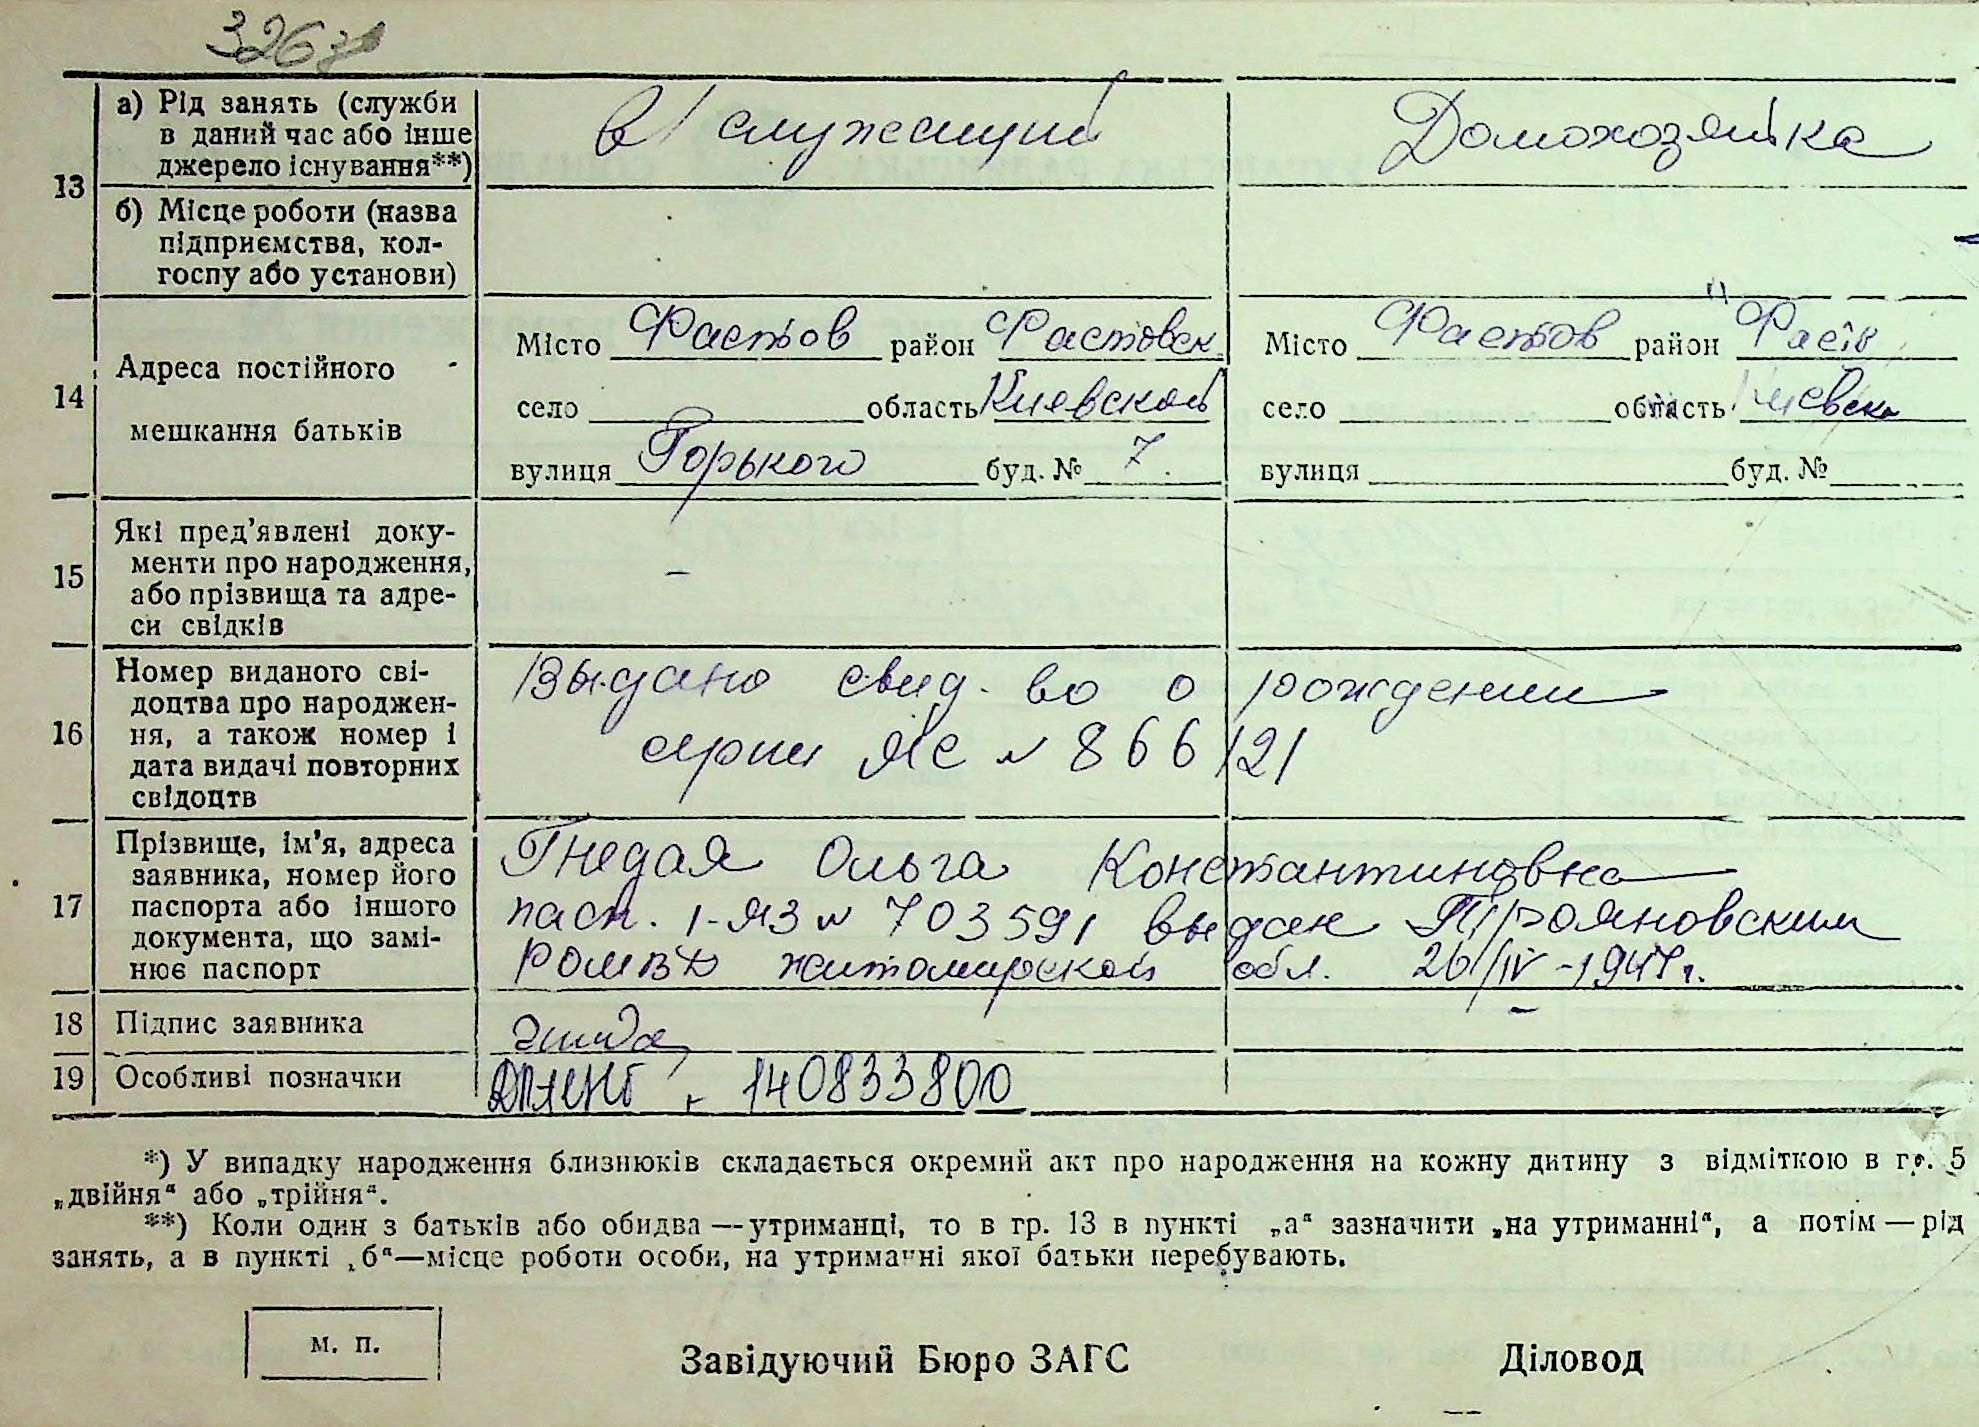 3267
13
а) Рід занять (служби
в даний час або інше
джерело існування**)
в/служащий
Домохозяйка
б) Місце роботи (назва
підприємства, кол-
госпу або установи)
14
Адреса постійного
мешкання батьків
Місто Фастов район Фастовск
село область Киевской
вулиця Горького буд. № 7.
Місто Фастов район
село область Киевска
вулиця буд. №
15
Які пред'явлені доку-
менти про народження,
або прізвища та адре-
си свідків
–
16
Номер виданого сві-
доцтва про народжен-
ня, а також номер і
дата видачі повторних
свідоцтв
Выдано свид-во о рождении
серии ЯС № 866121
17
Прізвище, ім'я, адреса
заявника, номер його
паспорта або іншого
документа, що замі-
нює паспорт
Гнедая Ольга Константиновна
пасп. 1-ЯЗ № 703591 выдан Трояновским
РОМВД Житомирской обл. 26/IV-1947г.
18
Підпис заявника
19
Особливі позначки
140833800
*) У випадку народження близнюків складається окремий акт про народження на кожну дитину з відміткою в гр. 5
„двійня“ або „трійня“.
**) Коли один з батьків або обидва — утриманці, то в гр. 13 в пункті „а“ зазначити „на утриманні“, а потім — рід
занять, а в пункті „б“—місце роботи особи, на утриманні якої батьки перебувають.
м. п.
Завідуючий Бюро ЗАГС
Діловод